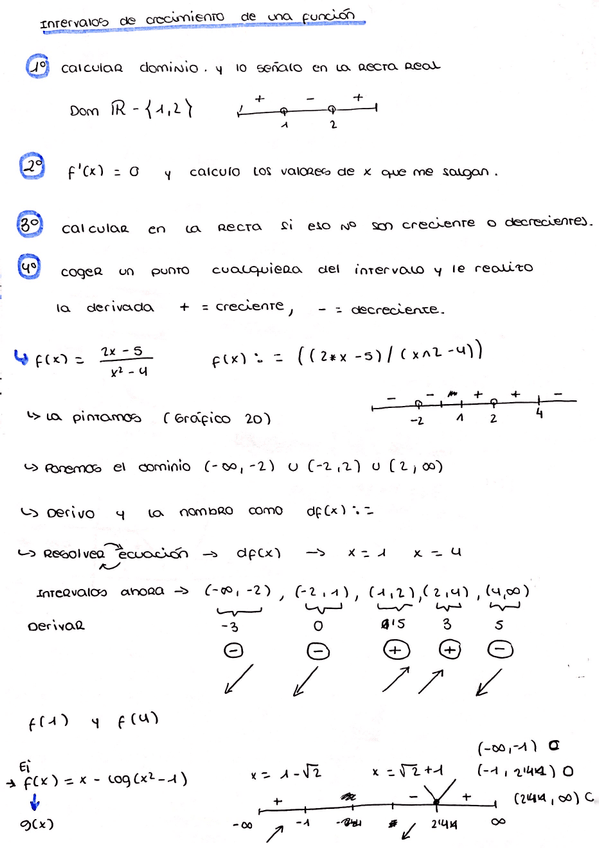 Intervalos de crecimiento de una función
1º calcular dominio. y lo señalo en la recta real
Dom ℝ - {1,2} + - + 1 2
2º f'(x) = 0 y calculo los valores de x que me salgan.
3º calcular en la recta si eso no son creciente o decrecientes.
4º coger un punto cualquiera del intervalo y le realizo
la derivada + = creciente, - = decreciente.
↳ f(x) = 2x - 5 / x² - 4 f(x) := ((2*x -5)/(x^2 -4))
- - + + -
↳ la pintamos (Gráfico 20) -2 1 2 4
↳ Ponemos el dominio (-∞, -2) ∪ (-2, 2) ∪ (2, ∞)
↳ Derivo y la nombro como df(x) :=
↳ Resolver ecuación → df(x) → x = 1 x = 4
Intervalos ahora → (-∞, -2), (-2, 1), (1, 2), (2, 4), (4, ∞)
Derivar -3 0 1'5 3 5
- - + + -
↙ ↙ ↗ ↗ ↙
f(1) y f(4)
Ej
→ f(x) = x - log(x² -1) x = 1 - √2 x = √2 + 1
↓
g(x)
(-∞, -1) C
(-1, 2'414) D
(2'414, ∞) C
+ - +
-∞ -1 2'414 ∞
↗ ↙